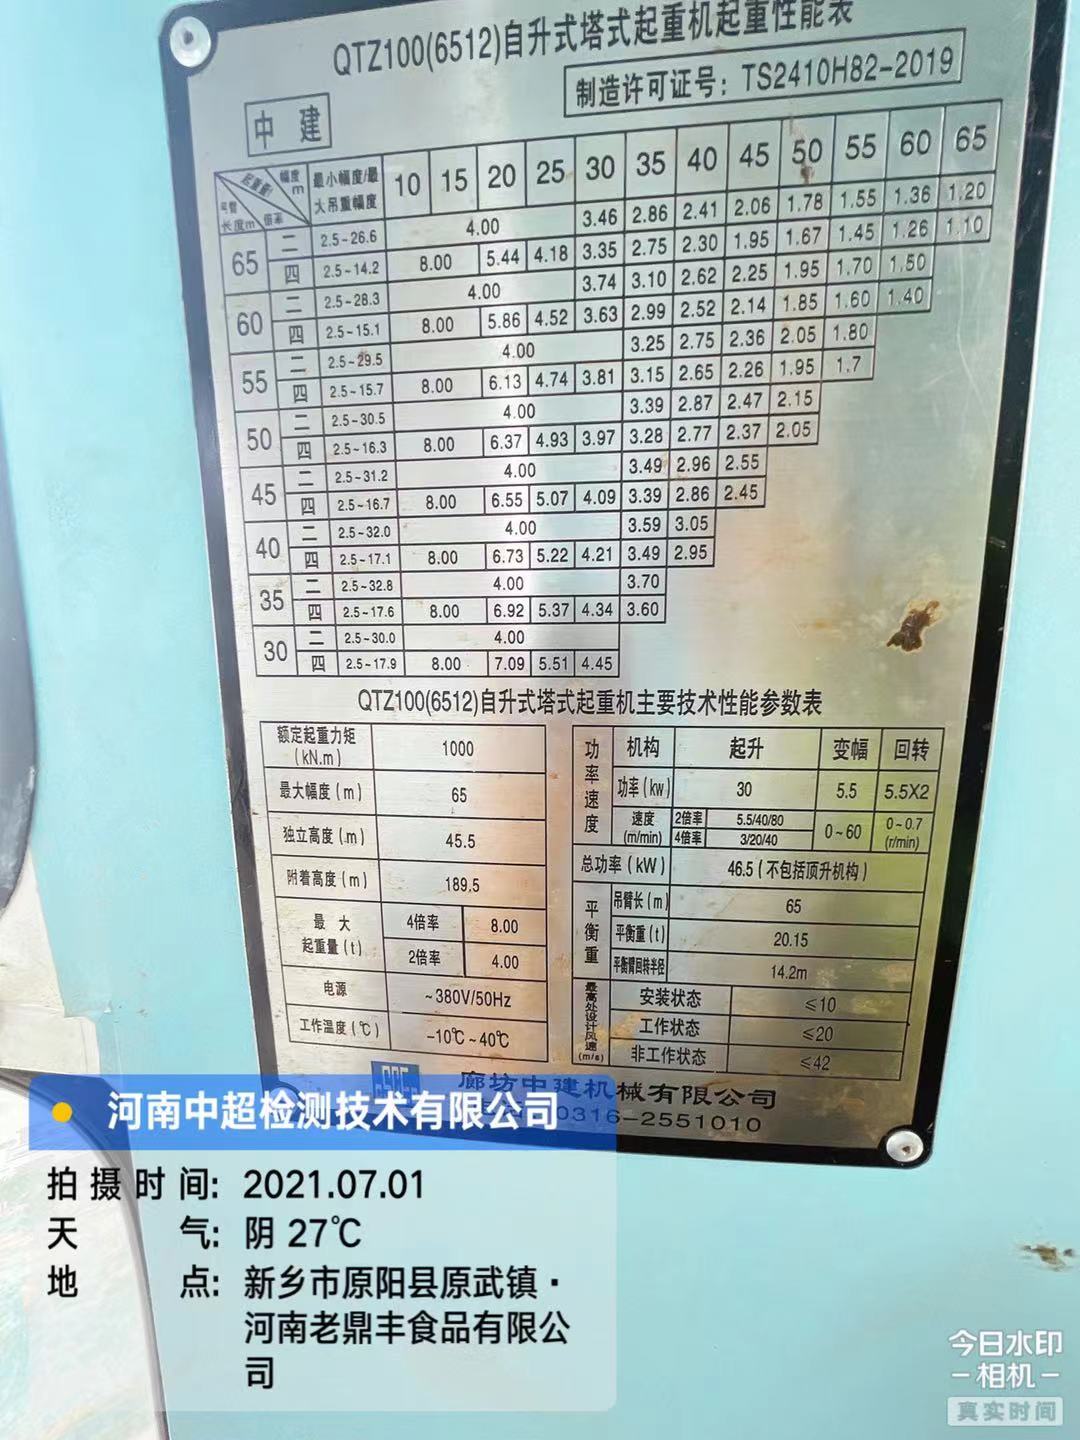 QTZ100(6512)自升式塔式起重机起重性能表
制造许可证号：TS2410H82-2019
中 建
起重量t 幅度m 倍率 长度m 最小幅度/最大吊重幅度 10 15 20 25 30 35 40 45 50 55 60 65
65 二 2.5-26.6 4.00 3.46 2.86 2.41 2.06 1.78 1.55 1.36 1.20
四 2.5-14.2 8.00 5.44 4.18 3.35 2.75 2.30 1.95 1.67 1.45 1.26 1.10
60 二 2.5-28.3 4.00 3.74 3.10 2.62 2.25 1.95 1.70 1.50
四 2.5-15.1 8.00 5.86 4.52 3.63 2.99 2.52 2.14 1.85 1.60 1.40
55 二 2.5-29.5 4.00 3.25 2.75 2.36 2.05 1.80
四 2.5-15.7 8.00 6.13 4.74 3.81 3.15 2.65 2.26 1.95 1.7
50 二 2.5-30.5 4.00 3.39 2.87 2.47 2.15
四 2.5-16.3 8.00 6.37 4.93 3.97 3.28 2.77 2.37 2.05
45 二 2.5-31.2 4.00 3.49 2.96 2.55
四 2.5-16.7 8.00 6.55 5.07 4.09 3.39 2.86 2.45
40 二 2.5-32.0 4.00 3.59 3.05
四 2.5-17.1 8.00 6.73 5.22 4.21 3.49 2.95
35 二 2.5-32.8 4.00 3.70
四 2.5-17.6 8.00 6.92 5.37 4.34 3.60
30 二 2.5-30.0 4.00
四 2.5-17.9 8.00 7.09 5.51 4.45
QTZ100(6512)自升式塔式起重机主要技术性能参数表
额定起重力矩(kN.m) 1000
最大幅度(m) 65
独立高度(.m) 45.5
附着高度(m) 189.5
最大起重量(t) 4倍率 8.00
2倍率 4.00
电源 ~380V/50Hz
工作温度(℃) -10℃~40℃
功率速度 机构 起升 变幅 回转
功率(kw) 30 5.5 5.5X2
速度(m/min) 2倍率 5.5/40/80 0~60 0~0.7(r/min)
4倍率 3/20/40
总功率(kW) 46.5(不包括顶升机构)
平衡重 吊臂长(m) 65
平衡重(t) 20.15
平衡臂回转半径 14.2m
最高处设计风速(m/s) 安装状态 ≤10
工作状态 ≤20
非工作状态 ≤42
廊坊中建机械有限公司
0316-2551010
河南中超检测技术有限公司
拍摄时间: 2021.07.01
天气: 阴 27℃
地点: 新乡市原阳县原武镇·
河南老鼎丰食品有限公
司
今日水印
-相机-
真实时间